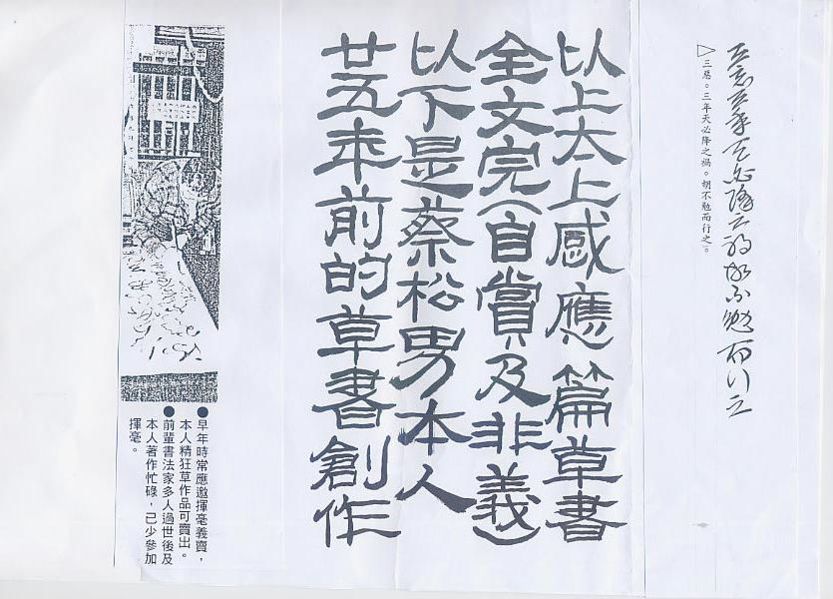 三惡三年天必降之禍胡不勉而行之
▷三惡。三年天必降之禍。胡不勉而行之。
以上太上感應篇草書
全文完(自賞及非義)
以下是蔡松男本人
廿五年前的草書創作
●早年時常應邀揮毫義賣，
本人精狂草作品可賣出。
●前輩書法家多人過世後及
本人著作忙碌，己少參加
揮毫。